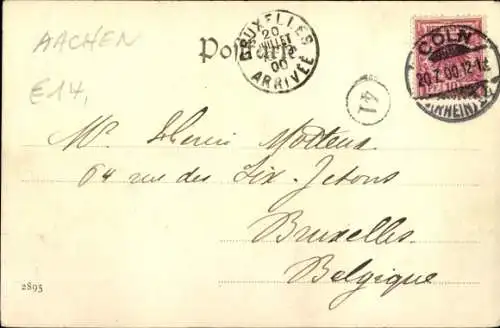 AACHEN
Postkarte
BRUXELLES
20
JUILLET
00
ARRIVÉE
CÖLN
20.7.00.12-1N
(RHEIN)
E14,
41
64 rue des Six-Jetons
Bruxelles.
Belgique
2895